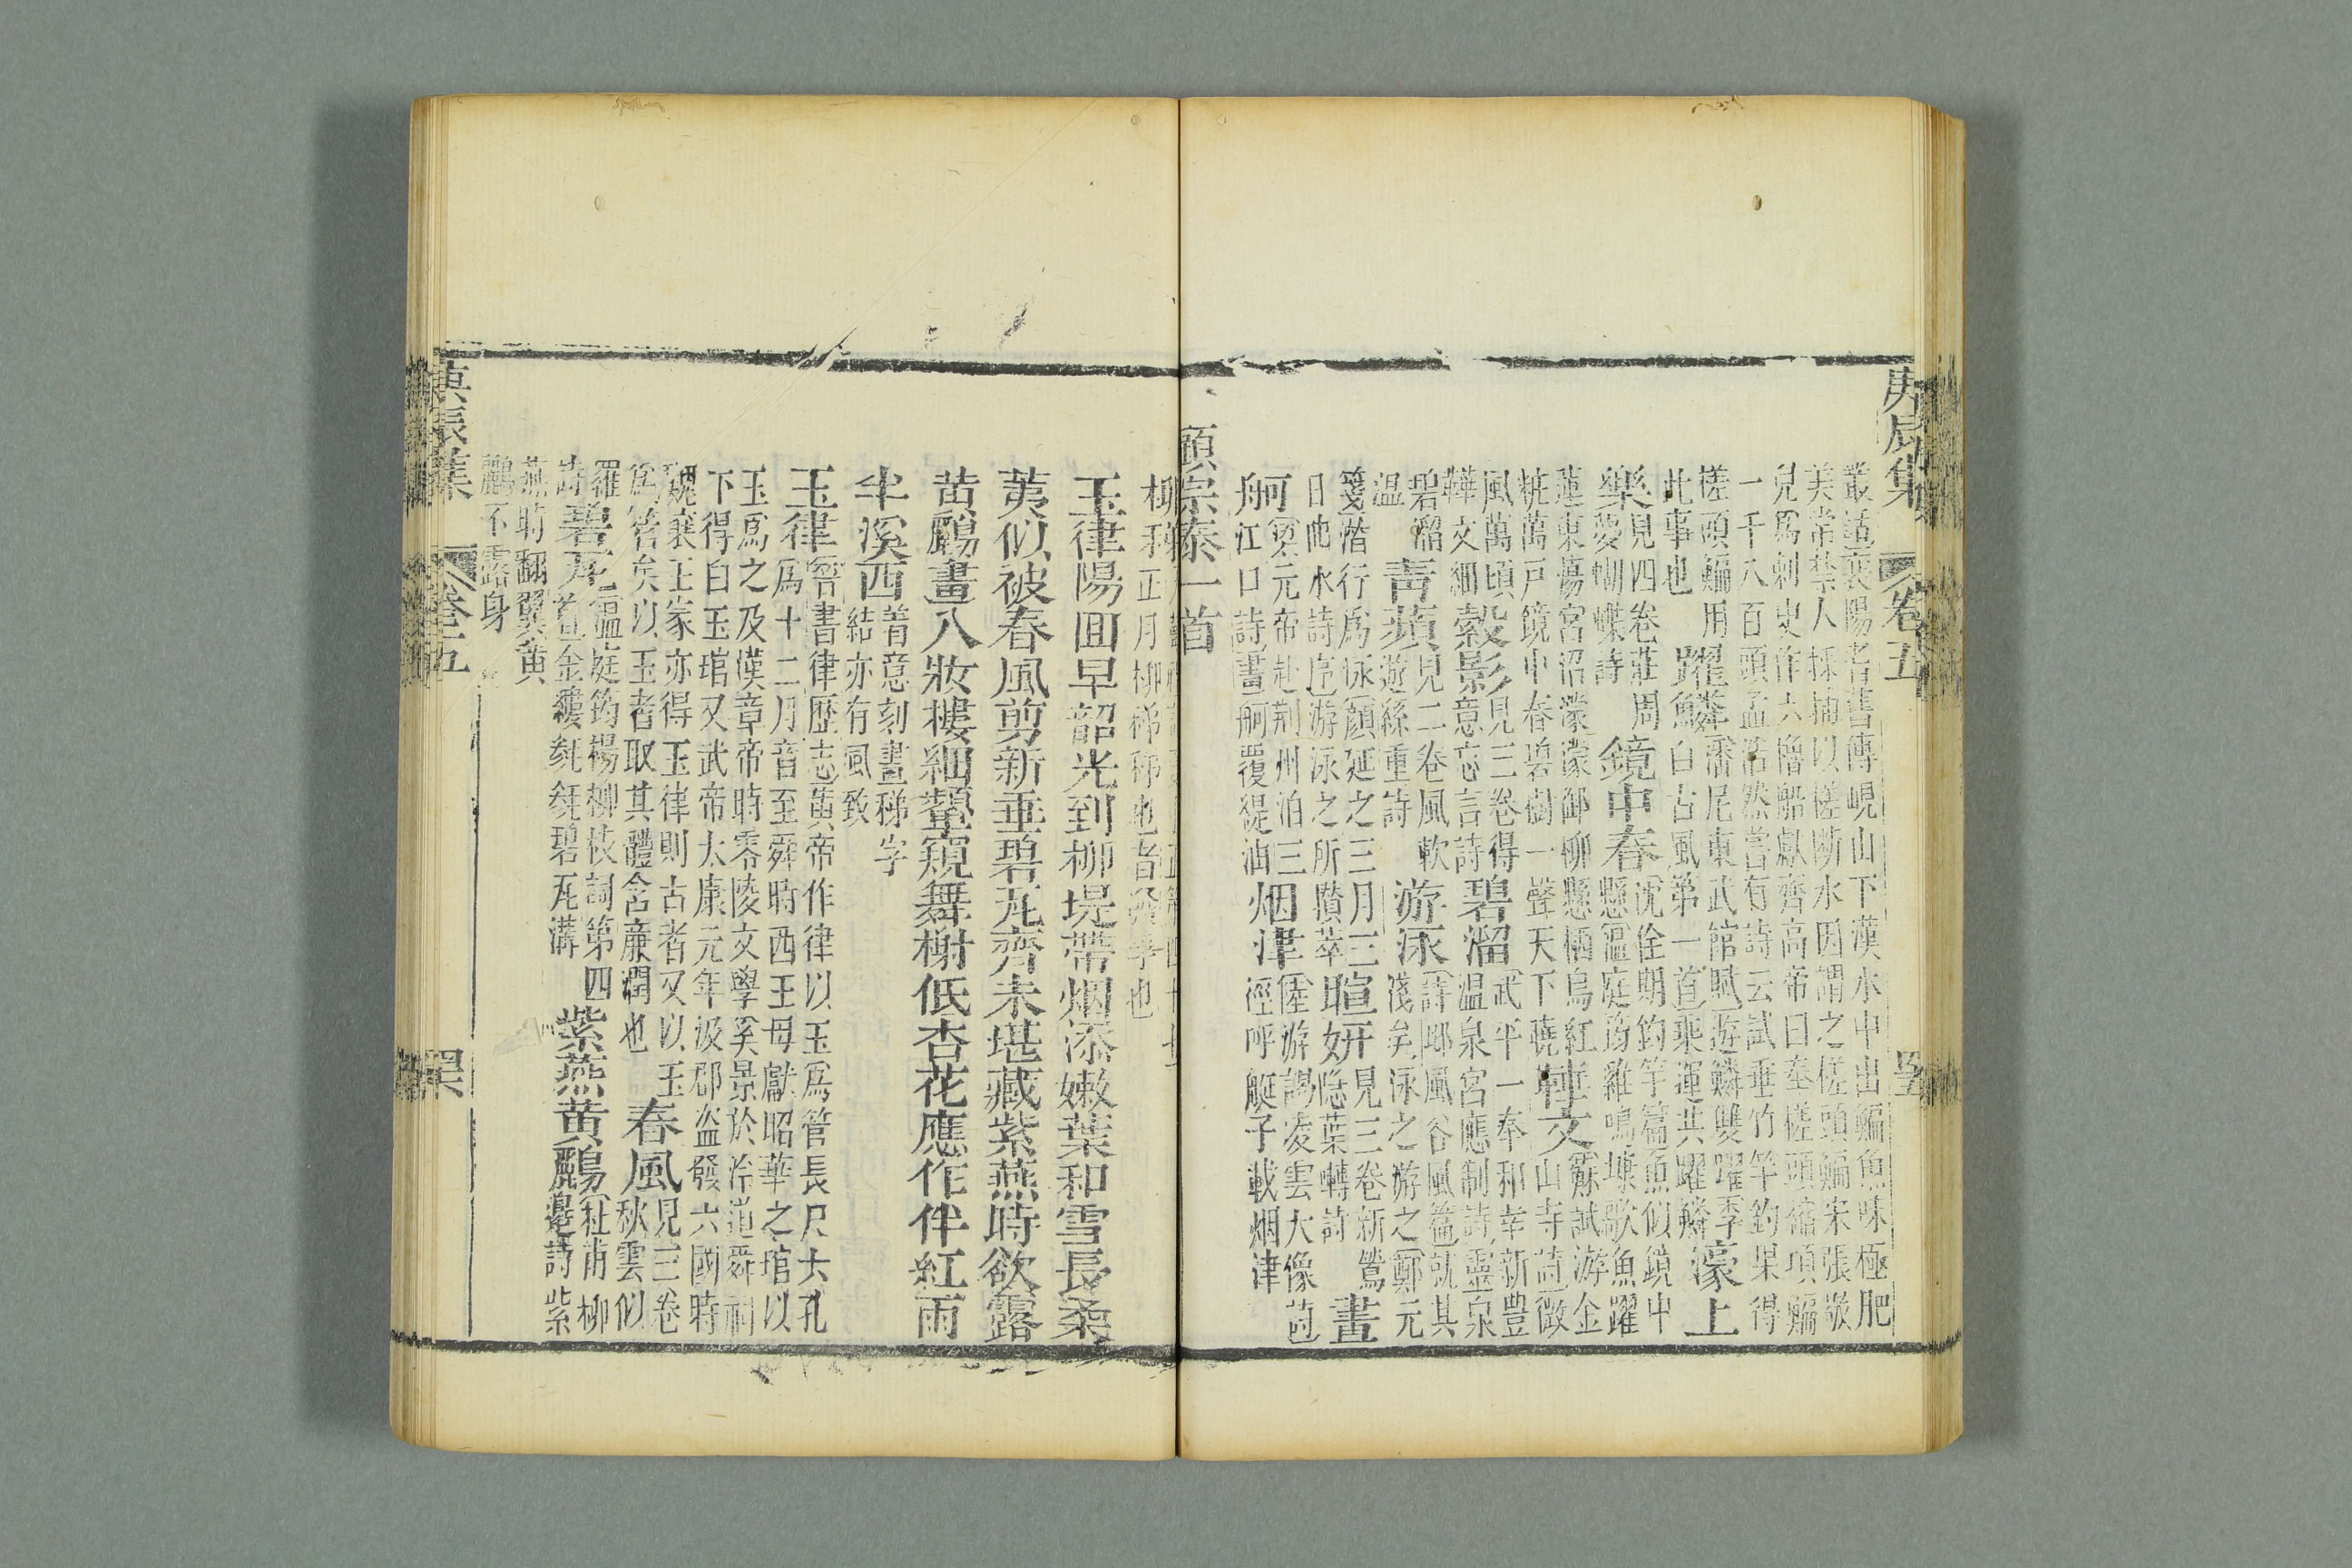 庚辰集 卷五
叢話襄陽耆舊傳峴山下漢水中出鯿魚味極肥
美常禁人採捕以槎斷水因謂之槎頭鯿宋張敬
兒為刺史作六櫓船獻齊高帝曰奉槎頭縮項鯿
一千八百頭孟浩然嘗有詩云試垂竹竿釣果得
槎頭鯿用
此事也
躍鱗
潘尼東武館賦遊鱗雙躍季
白古風第一首乘運共躍鱗
濠上
樂
見四卷莊周
夢蝴蝶詩
鏡中春
沈佺期釣竿篇魚似鏡中
懸溫庭筠雞鳴埭歌魚躍
蓮東蕩宮沼濛濛御柳懸栖烏紅
粧萬戸鏡中春碧樹一聲天下曉
鞾文
蘇試游金
山寺詩微
風萬頃
鞾文細
縠影
見三卷得
意忘言詩
碧溜
武平一奉和幸新豐
温泉宮應制詩靈泉
碧溜
温
青蘋
見二卷風軟
遊絲重詩
游泳
詩邶風谷風篇就其
淺矣泳之游之鄭元
箋潛行為泳顔延之三月三
日曲水詩序游泳之所攢萃
暄妍
見三卷新鶯
隱葉囀詩
畫
舸
梁元帝赴荆州泊三
江口詩畫舸覆緹油
烟津
陸游謁凌雲大像詩
徑呼艇子載烟津
柳稊
正月柳稊稊也者發孚也
顧宗泰一首
玉律陽囬早韶光到柳堤帶烟添嫩葉和雪長柔
荑似被春風剪新垂碧瓦齊未堪藏紫燕時欲露
黄鸝畫八妝樓細顰窺舞榭低杏花應作伴紅雨
半溪西
着意刻畫稊字
結亦有風致
玉律
晉書律歴志黄帝作律以玉爲管長尺六孔
爲十二月音至舜時西王母獻昭華之琯以
玉爲之及漢章帝時零陵文學奚景於泠道舜祠
下得白玉琯又武帝太康元年汲郡盜發六國時
魏襄王冢亦得玉律則古者又以玉
爲管矣以玉者取其體含廉潤也
春風
見三卷
秋雲似
羅
詩
碧瓦
溫庭筠楊柳枝詞第四
首金縷毿毿碧瓦溝
紫燕黄鸝
杜甫柳
邊詩紫
燕時翻翼黄
鸝不露身
庚辰集 卷五